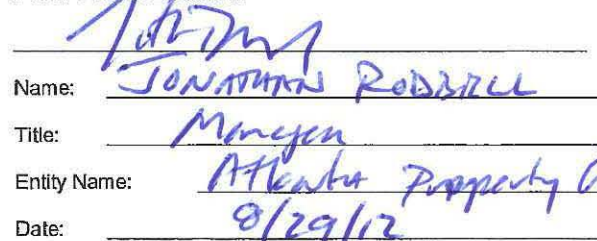 Name: JONATHAN RODBELL
Title: Manager
Entity Name: Atlanta Property
Date: 8/29/12